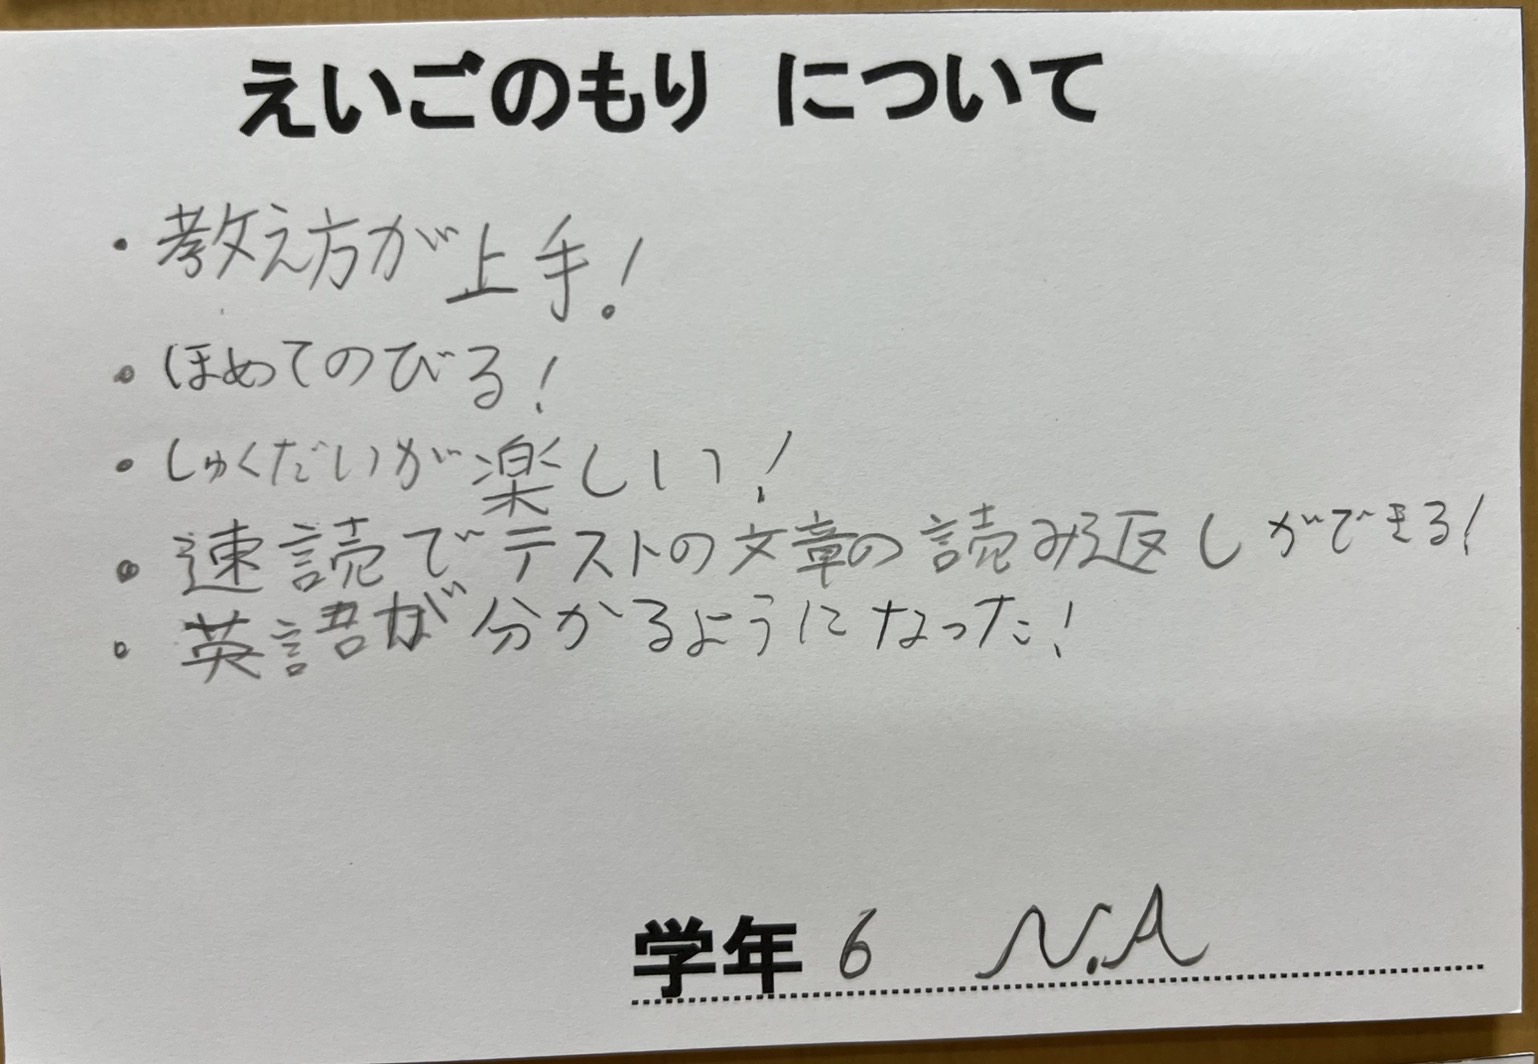 えいごのもり について
・教え方が上手!
・ほめてのびる!
・しゅくだいが楽しい!
・速読でテストの文章の読み返しができる!
・英語が分かるようになった!
学年 6 N.A